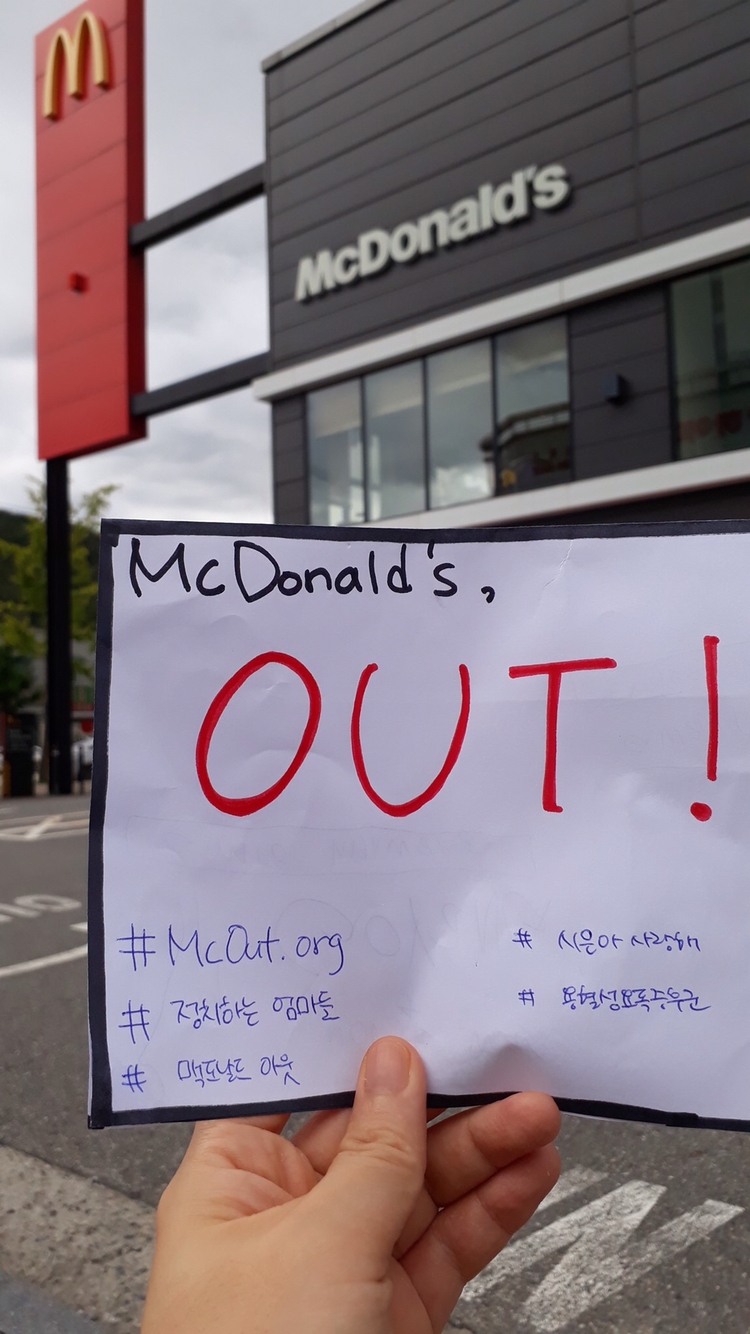 McDonald's
McDonald's,
OUT!
#McOut.org
# 정치하는 엄마들
# 맥도날드 아웃
# 시은아 사랑해
# 용혈성요독증후군